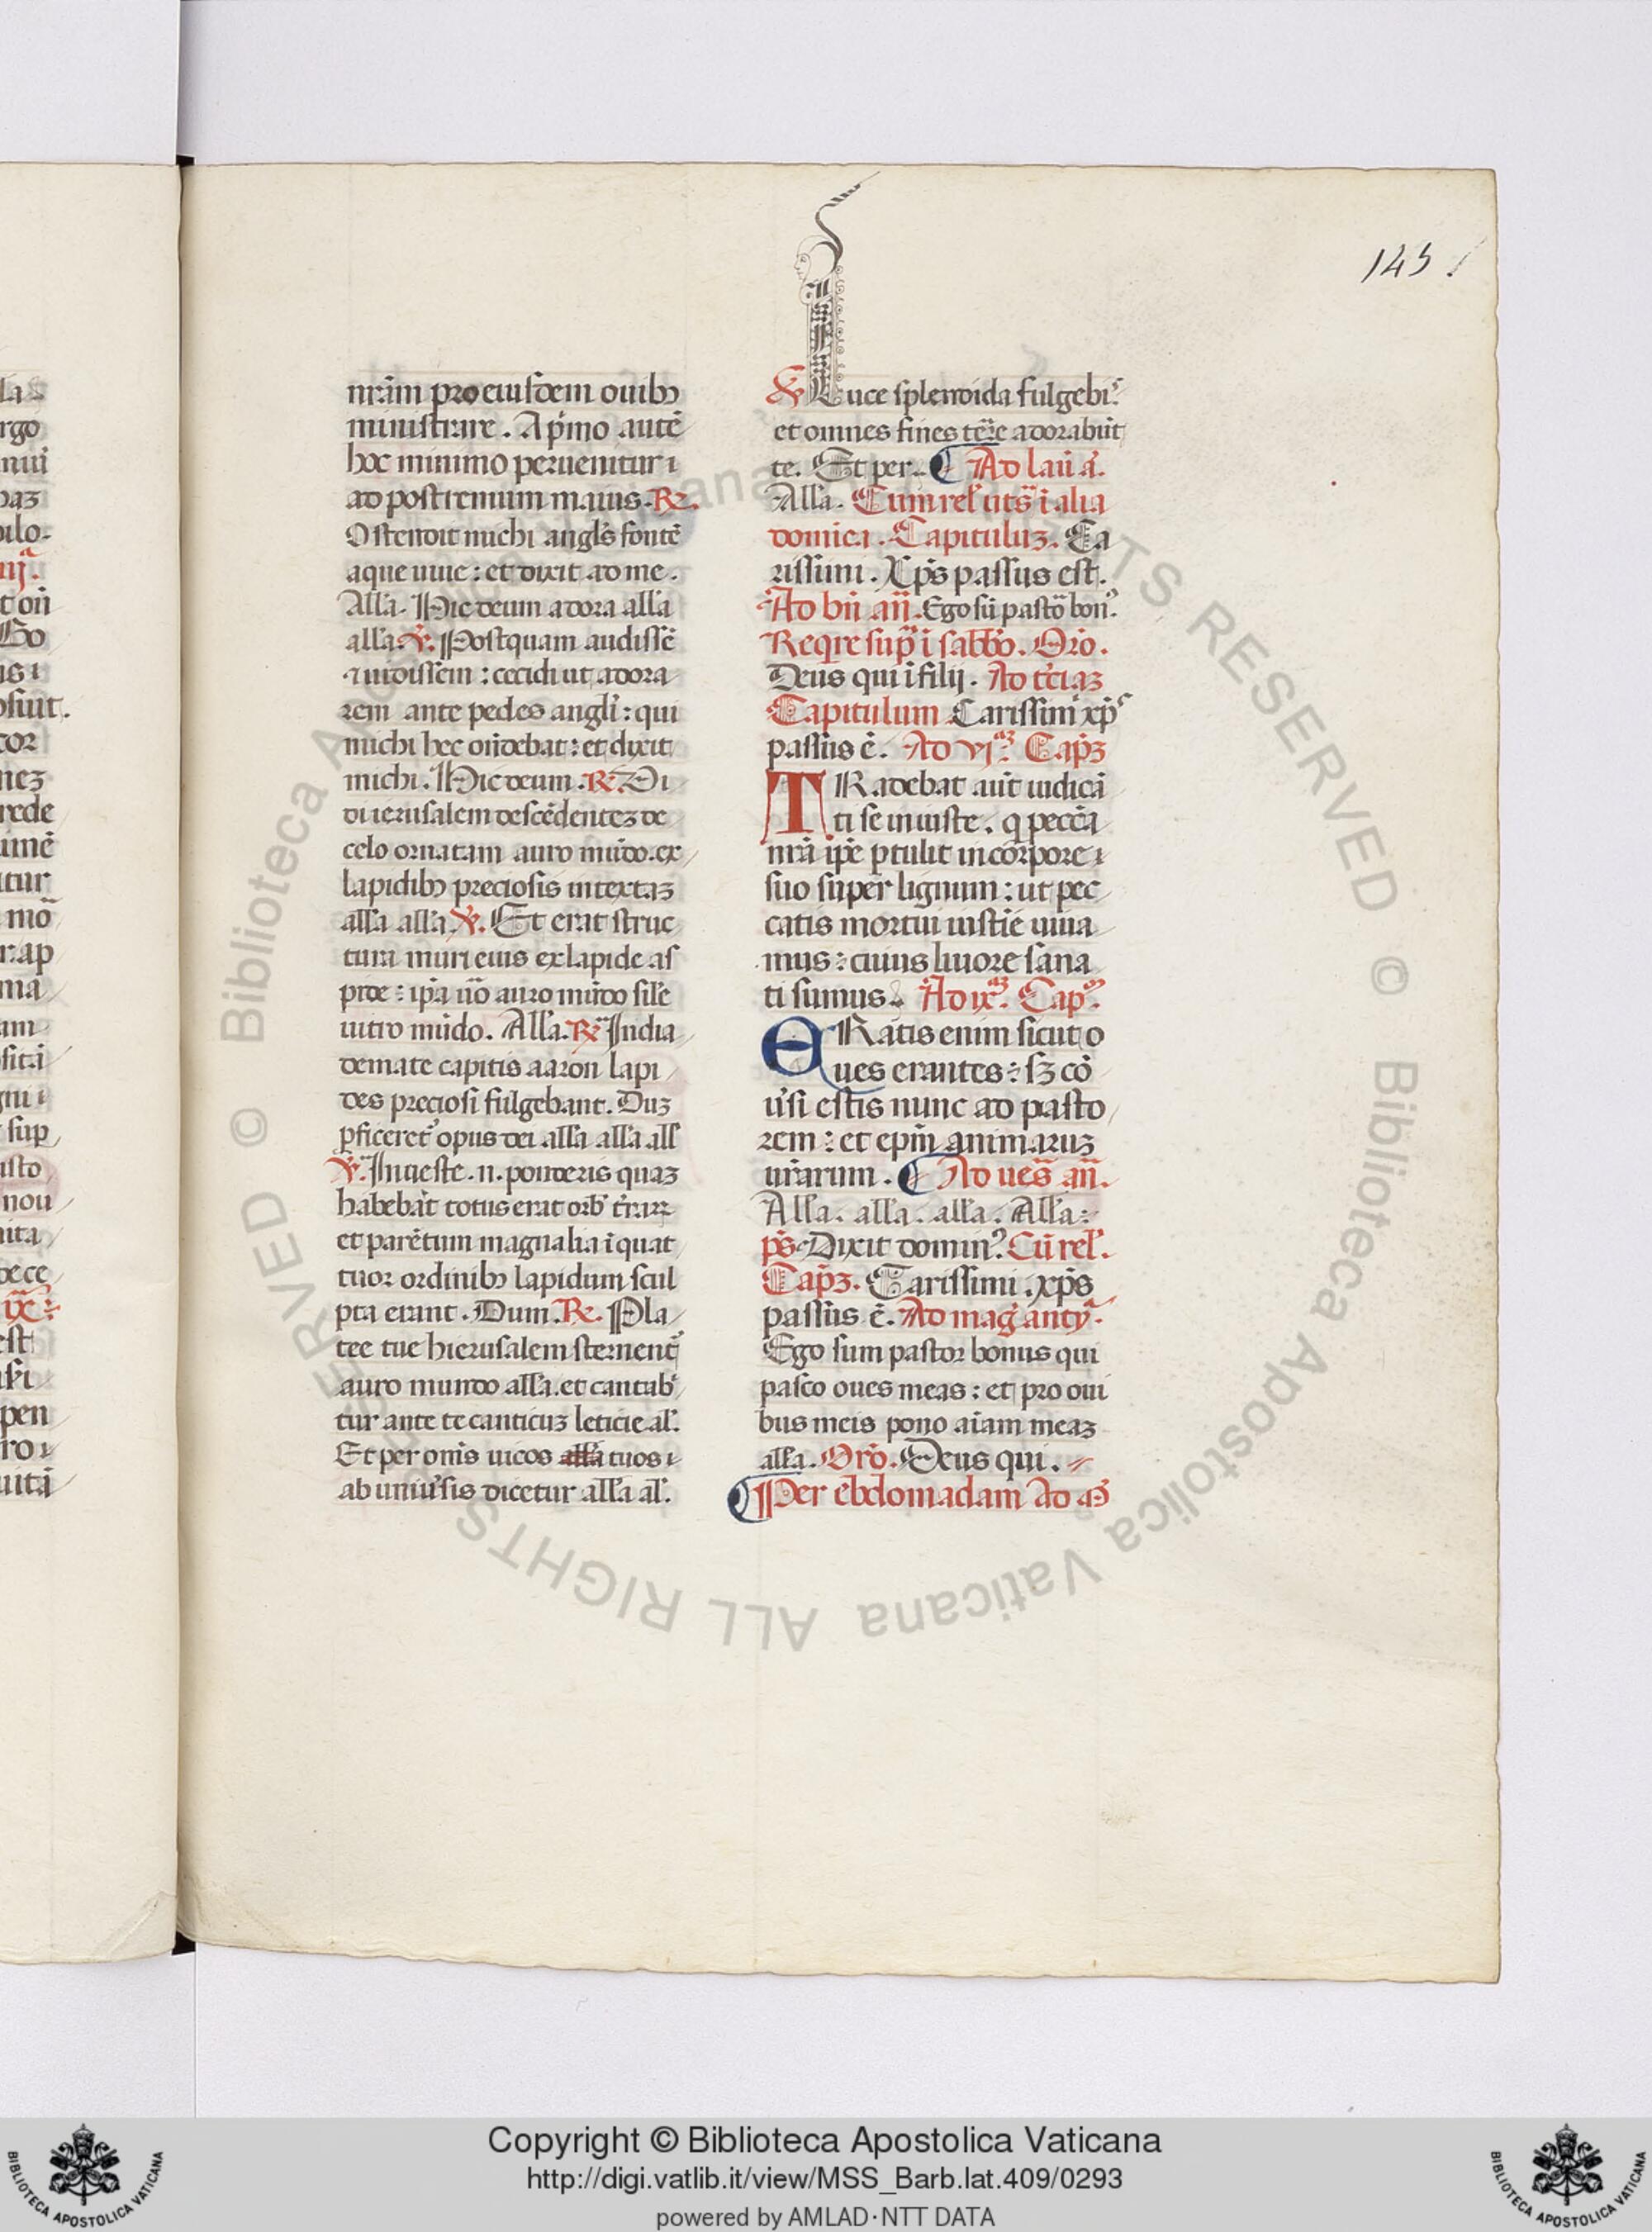 145
nr̃am pro eiusdem ouibꝫ
ministrare. A pͥmo autẽ
hoc minimo peruenitur ı
ad postremum maius. R⁊.
Ostendit michi angl̃s fontẽ
aque uiue: et dixit ad me.
Alla. Hic deum adora alla
alla. ℣. Postquam audissẽ
⁊ uidissem: cecidi ut adora
rem ante pedes angl̃i: qui
michi hec on̄debat: et dixit
michi. Hic deum. R⁊. Ui
di ierusalem descẽdenteꝫ de
celo ornatam auro mũdo. ex
lapidibꝫ preciosis intextaꝫ
alla alla. ℣. Et erat struc
tura muri eius ex lapide as
pide: ip̃a uõ auro mũdo sil̃e
uitro mũdo. Alla. R⁊ In dia
demate capitis aaron lapi
des preciosi fulgebant. Duꝫ
ꝑficeret᷑ opus dei alla alla all
℣. In ueste .n. ponderis quaꝫ
habebãt totus erat orb᷒ t̃raꝝ
et parẽtum magnalia ĩ quat
tuor ordinibꝫ lapidum scul
pta erant. Dum. R⁊. Pla
tee tue hierusalem sternent᷑
auro mundo alla. et cantabͥ
tur ante te canticuꝫ leticie al̃.
Et per om̃s uicos alla tuos ı
ab uniũsis dicetur alla al̃.
℣ Luce splendida fulgebi᷒
et omnes fines tẽre adorabũt
te. Et per. Ad lau᷒ ã.
Alla. Cum rel᷒ uts̃ ĩ alia
domica. Capituluꝫ. Ca
rissimi. Xp̃s passus est.
Ad bñ añ. Ego sũ pastõ bon᷒
Reqͥre sup̃ ĩ sabb̃o. Oro᷒.
Deus qui ĩ filij. Ad tc̃iaꝫ
Capitulum Carissimi xp̃ᷤ
passus ẽ. Ad vjᵃꝫ. Cap̃ꝫ
TRadebat aũt iudicã
ti se iniuste. q peccã
nr̃a ip̃e ꝑtulit in corpore ı
suo super lignum: ut pec
catis mortui iustiẽ uiua
mus: cuius liuore sana
ti sumus. Ad ixᵃꝫ. Capᵐ
ERatis enim sicut o
ues erantes: sꝫ cõ
ũsi estis nunc ad pasto
rem: et ep̃m animaruꝫ
ur̃arum. Ad ues̃ añ.
Alla. alla. alla. Alla:
ps̃ Dixit domin᷒ Cũ rel᷒.
Cap̃ꝫ. Carissimi. xp̃s
passus ẽ. Ad mag᷒ antyᵃ.
Ego sum pastor bonus qui
pasco oues meas: et pro oui
bus meis pono aĩam meaꝫ
alla. Oro᷒. Deus qui.
Per ebdomadam Ad
Copyright © Biblioteca Apostolica Vaticana
http://digi.vatlib.it/view/MSS_Barb.lat.409/0293
powered by AMLAD·NTT DATA